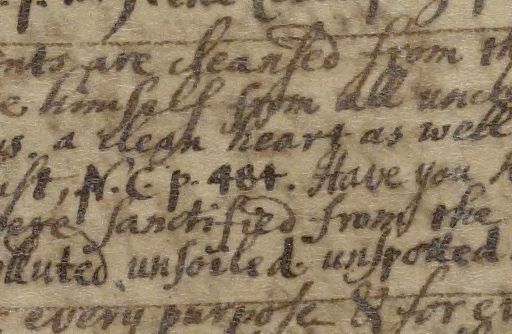 nts are cleansed from th
e himself from all uncl
us, a clean heart as well
ust, N. C. p. 484. Have you
were sanctified from the
olluted, unsoiled, unspotted
every purpose & for ev